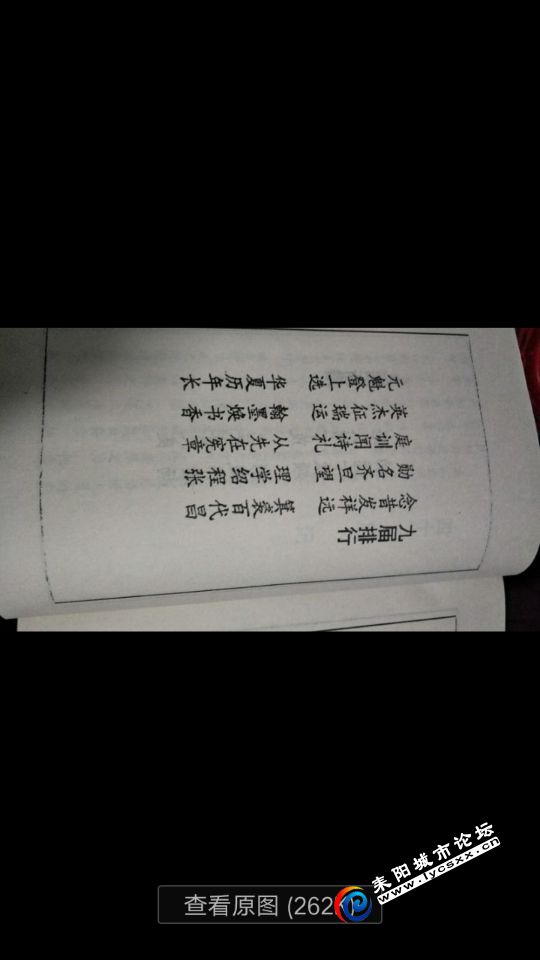 九届排行
念昔发祥远 箕裘百代昌
勋名齐旦望 理学绍程张
庭训闻诗礼 从先在宪章
英杰征瑞运 翰墨焕书香
元魁登上选 华夏历年长
耒阳城市论坛
www.lycsxx.cn
查看原图 (262K)